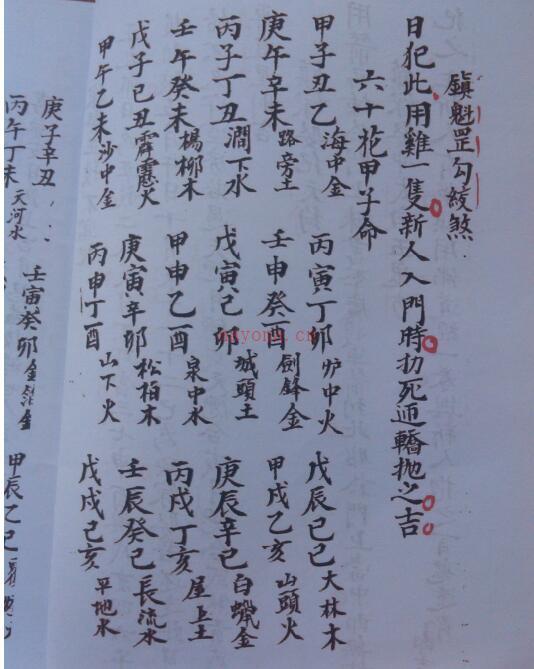 鎮魁罡勾絞煞
日犯此用雞一隻新人入門時扐死迊轎拋之吉
六十花甲子命
甲子丑乙海中金 丙寅丁卯炉中火 戊辰己巳大林木
庚午辛未路旁土 壬申癸酉劍鋒金 甲戌乙亥山頭火
丙子丁丑澗下水 戊寅己卯城頭土 庚辰辛巳白蠟金
壬午癸未楊柳木 甲申乙酉泉中水 丙戌丁亥屋上土
戊子己丑霹靂火 庚寅辛卯松柏木 壬辰癸巳長流水
甲午乙未沙中金 丙申丁酉山下火 戊戌己亥平地水
庚子辛丑 壬寅癸卯金箔金 甲辰乙巳
丙午丁未天河水